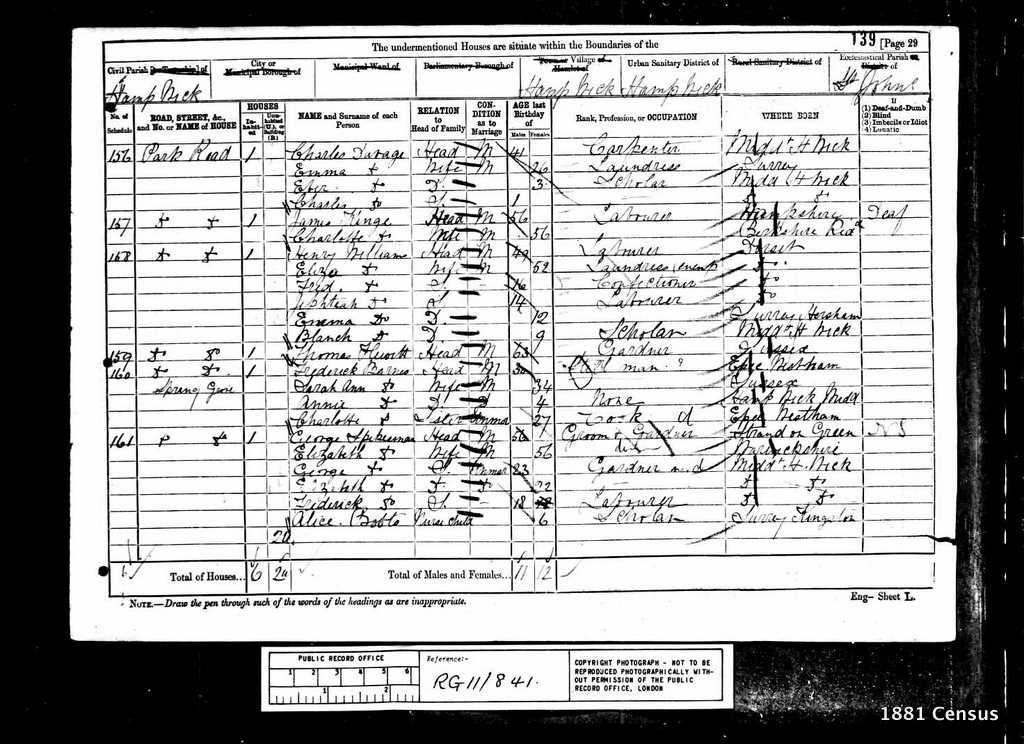 139 [Page 29
The undermentioned Houses are situate within the Boundaries of the
Civil Parish [or Township] of
City or Municipal Borough of
Municipal Ward of
Parliamentary Borough of
Town or Village or Hamlet of
Urban Sanitary District of
Rural Sanitary District of
Ecclesiastical Parish or District of
Hamp Wick Hamp Wick Hamp Wick St Johns
No. of Schedule
ROAD, STREET, &c., and No. or NAME of HOUSE
HOUSES
Inhabited
Uninhabited (U.), or Building (B.)
NAME and Surname of each Person
RELATION to Head of Family
CONDITION as to Marriage
AGE last Birthday of
Males Females
Rank, Profession, or OCCUPATION
WHERE BORN
If
(1) Deaf-and-Dumb
(2) Blind
(3) Imbecile or Idiot
(4) Lunatic
156 Park Road 1 Charles Head M 41 Carpenter Midd H Wick
Emma Do Wife M 26 Laundress Surrey
Do D 3 Scholar Midd H Wick
Charles Do S 1 Do Do
157 Do Do 1 James Head M 56 Labourer Deaf
Charlotte Do Wife M 56 Berkshire
158 Do Do 1 Henry Williams Head M 49 Labourer Dorset
Eliza Do Wife M 52 Laundress Do
Fred Do S 16 Confectioner Do
Do S 14 Labourer Do
Emma Do D 12 Surrey Horsham
Blanch Do D 9 Scholar Midd H Wick
159 Do Do 1 Thomas Hewitt Head M 63 Gardner Sussex
160 Do Do 1 Frederick Head M 30 man Westham
Spring Grove Sarah Ann Do Wife M 34 Sussex
Annie Do D 4 None Hamp Wick Midd
Charlotte Do Sister Unmar 27 Cook d Westham
161 Do Do 1 George Head M 56 Groom & Gardner Strand on Green
Elizabeth Do Wife M 56 Warwickshire
George Do S Unmar 23 Gardner Midd H. Wick
Elizabeth Do 22 Do Do
Frederick Do S. 18 Labourer Do Do
Alice Nurse Child 6 Scholar Surrey Kingston
Total of Houses... 6
Total of Males and Females... 11 12
NOTE.—Draw the pen through such of the words of the headings as are inappropriate.
Eng– Sheet L.
PUBLIC RECORD OFFICE
1 2 3 4 5 6
1 2
Reference:-
RG 11/841.
COPYRIGHT PHOTOGRAPH - NOT TO BE
REPRODUCED PHOTOGRAPHICALLY WITH-
OUT PERMISSION OF THE PUBLIC
RECORD OFFICE, LONDON
1881 Census